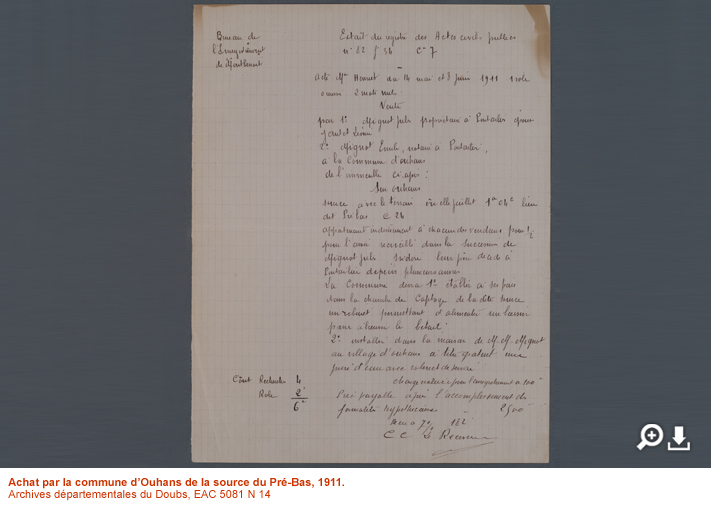 Bureau de
l'Enregistrement
de Montbenoit
Extrait du registre des Actes civils publics
n° 82 f° 34 C° 7
acte Me Hennet du 14 mai et 3 juin 1911 1 role
2 mots nuls.
Vente
par 1° Mignot Jules propriétaire à Pontarlier époux
2° Mignot Emile, notaire à Pontarlier,
à la Commune d'Ouhans
de l'immeuble ci après :
Sur Ouhans
source avec le terrain où elle jaillit 1a 04c lieu
dit Pré bas C 24
appartenant indivisément à chacun des vendeurs pour 1/2
pour l'avoir recueilli dans la succession de
Mignot Jules Isidore leur père décédé à
Pontarlier depuis plusieurs années
La Commune devra 1° établir à ses frais
dans la chambre de Captage de la dite source
un robinet permettant d'alimenter un bassin
pour abreuver le bétail.
2° installer dans la maison de M.M. Mignot
au village d'Ouhans à titre gratuit une
prise d'eau avec robinet de
charge évaluée pour l'enregistrement à 100
Prix payable après l'accomplissement des
formalités hypothécaires 2500
Coût Recherche 4
Role 2
6
162
Le Receveur
Achat par la commune d'Ouhans de la source du Pré-Bas, 1911.
Archives départementales du Doubs, EAC 5081 N 14